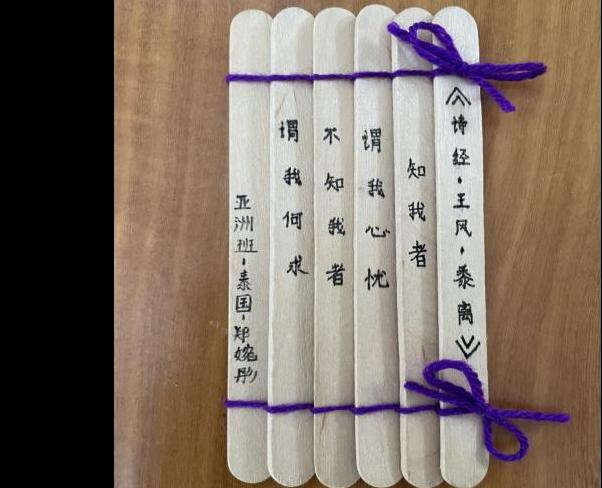 《诗经·王风·黍离》
知我者
谓我心忧
不知我者
谓我何求
亚洲班·泰国·郑婉彤